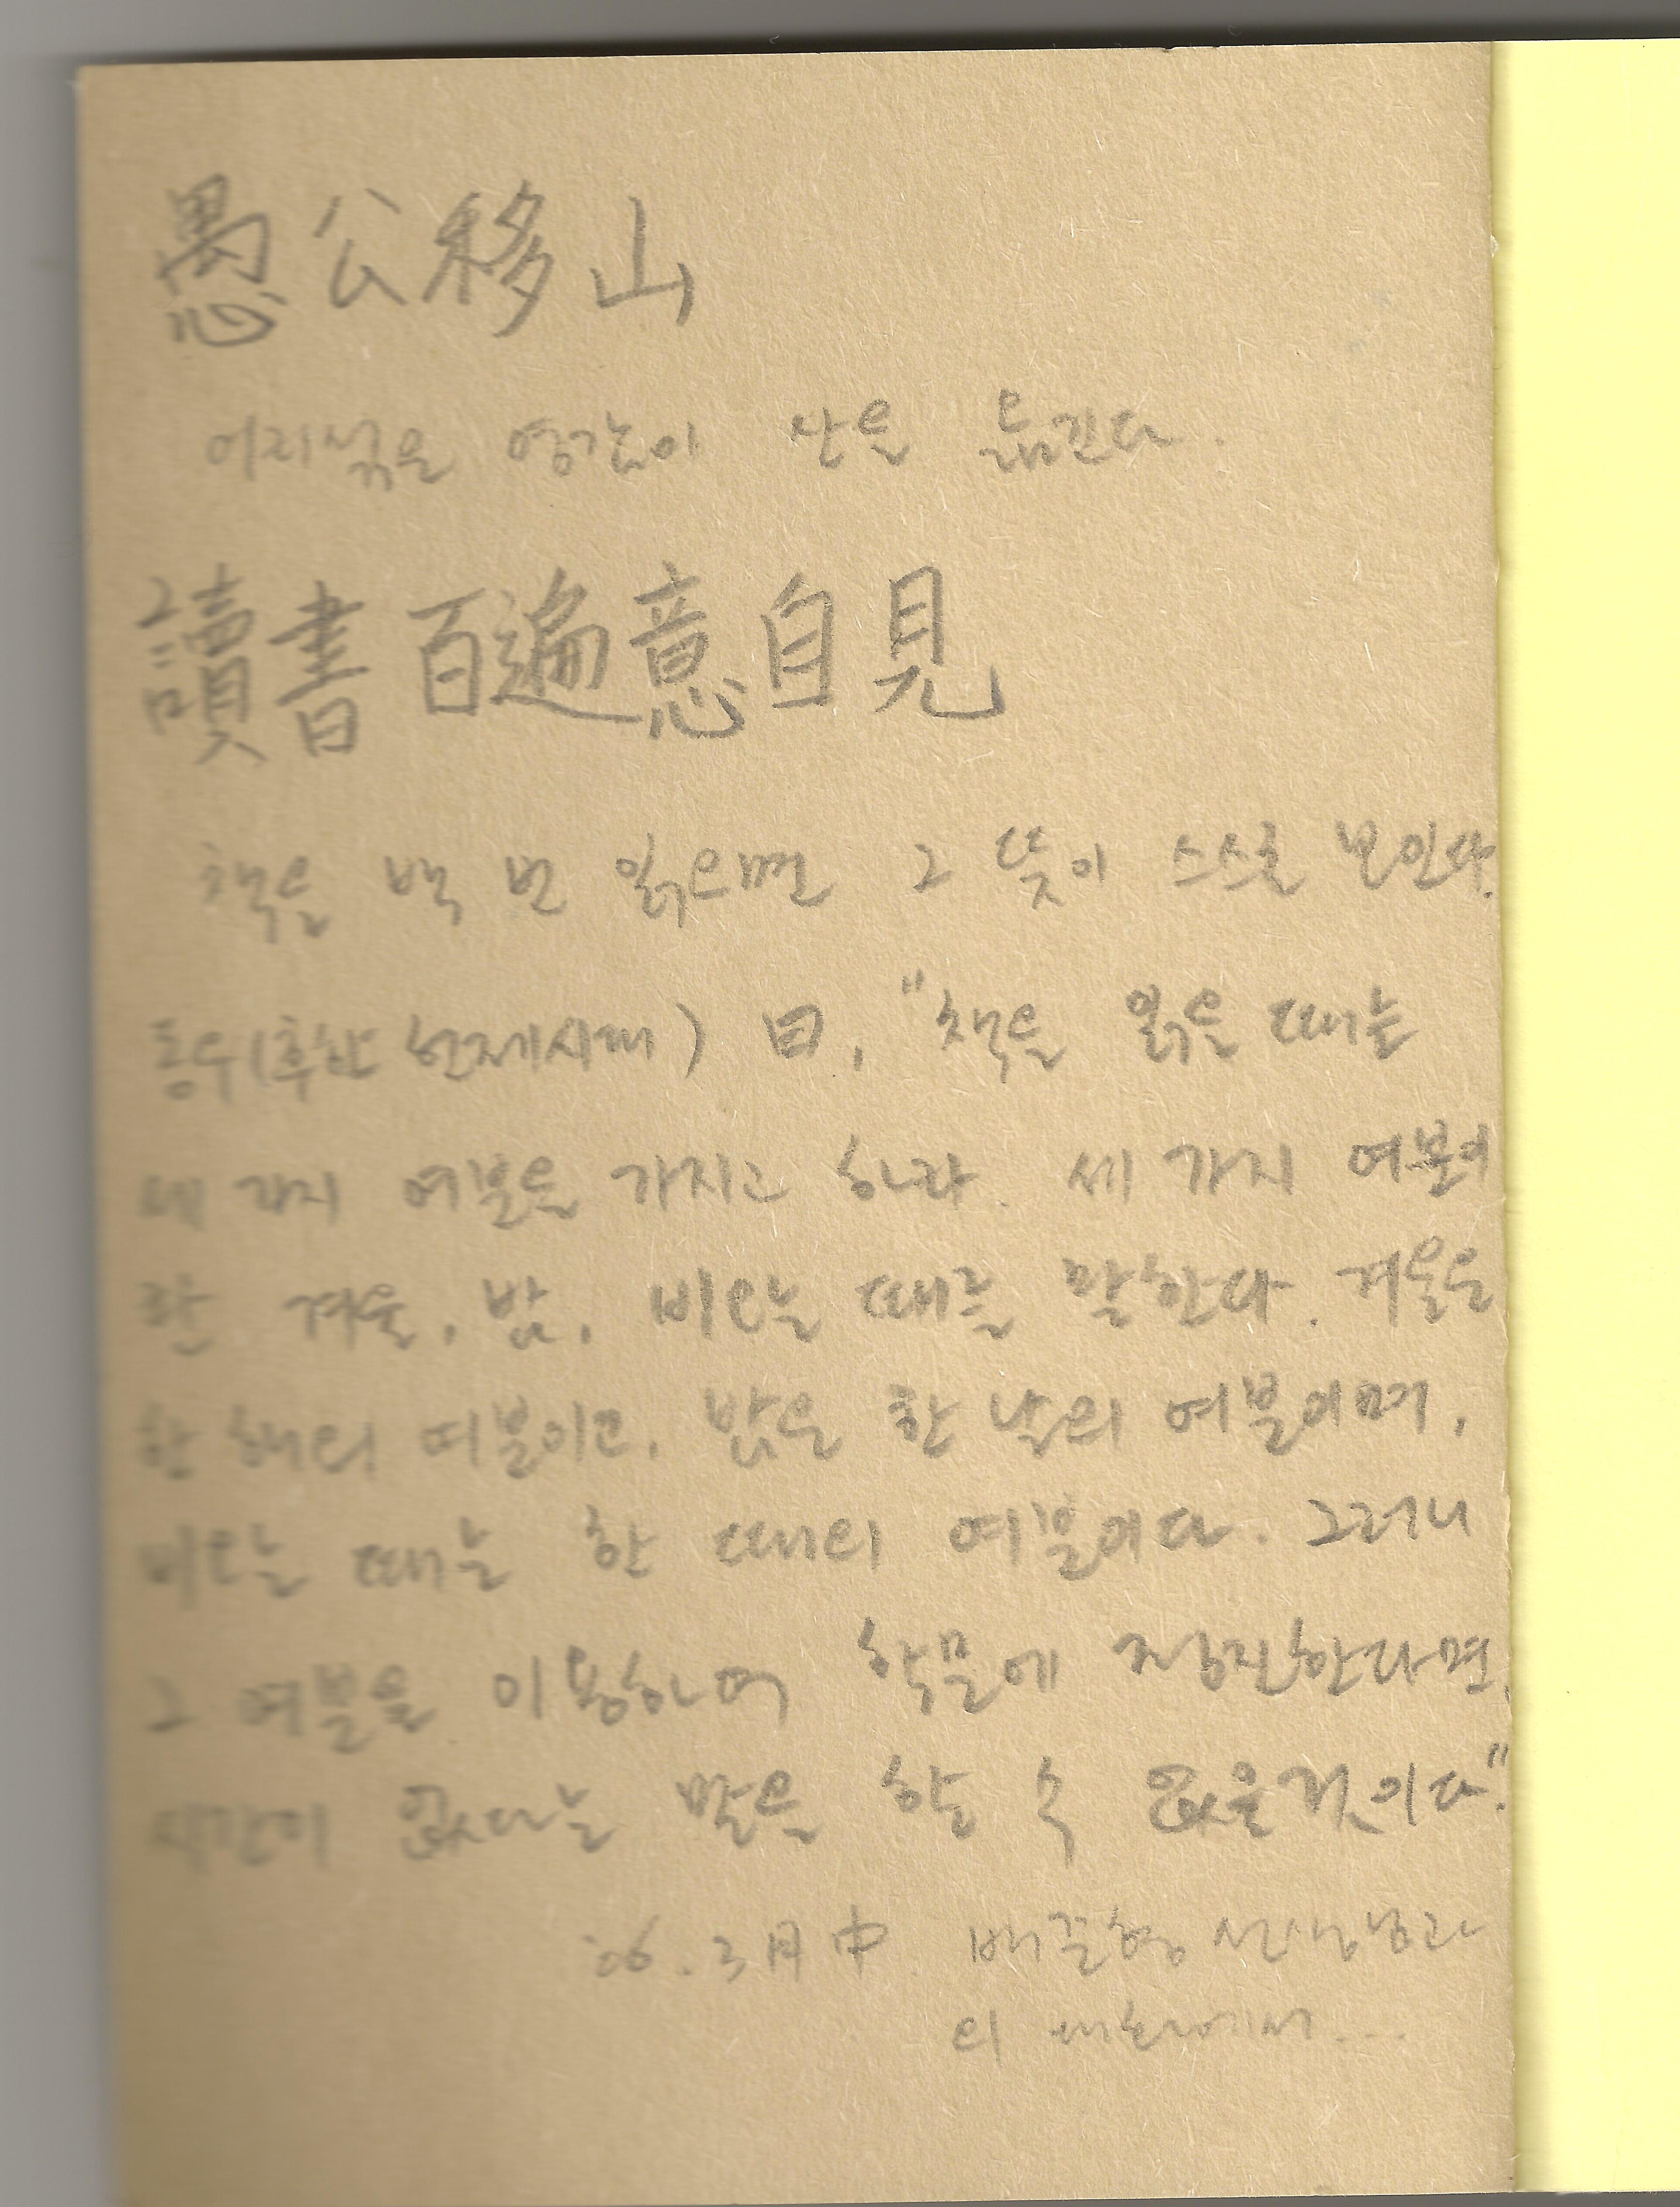 愚公移山
어리석은 영감이 산을 옮긴다.
讀書百遍意自見
책을 백 번 읽으면 그 뜻이 스스로 보인다.
동우(후한 헌제시대) 曰, "책을 읽을 때는
세 가지 여분을 가지고 하라. 세 가지 여분이
란 겨울, 밤, 비오는 때를 말한다. 겨울은
한 해의 여분이고, 밤은 한 날의 여분이며,
비오는 때는 한 때의 여분이다. 그러니
그 여분을 이용하여 학문에 정진한다면,
시간이 없다는 말은 할 수 없을것이다."
'06. 3月中. 선생님과
의 대화에서...